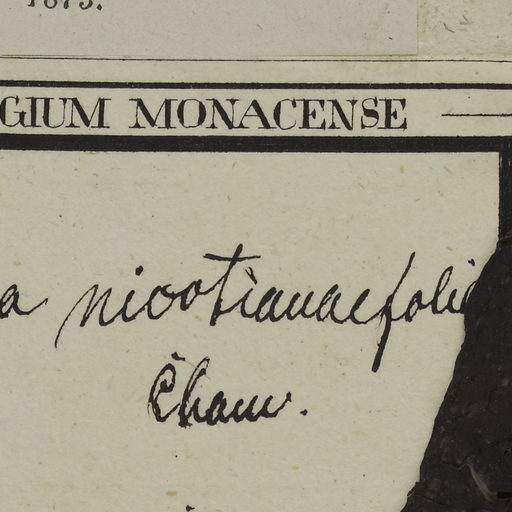 1875.
GIUM MONACENSE
a nicotianaefolia
Cham.